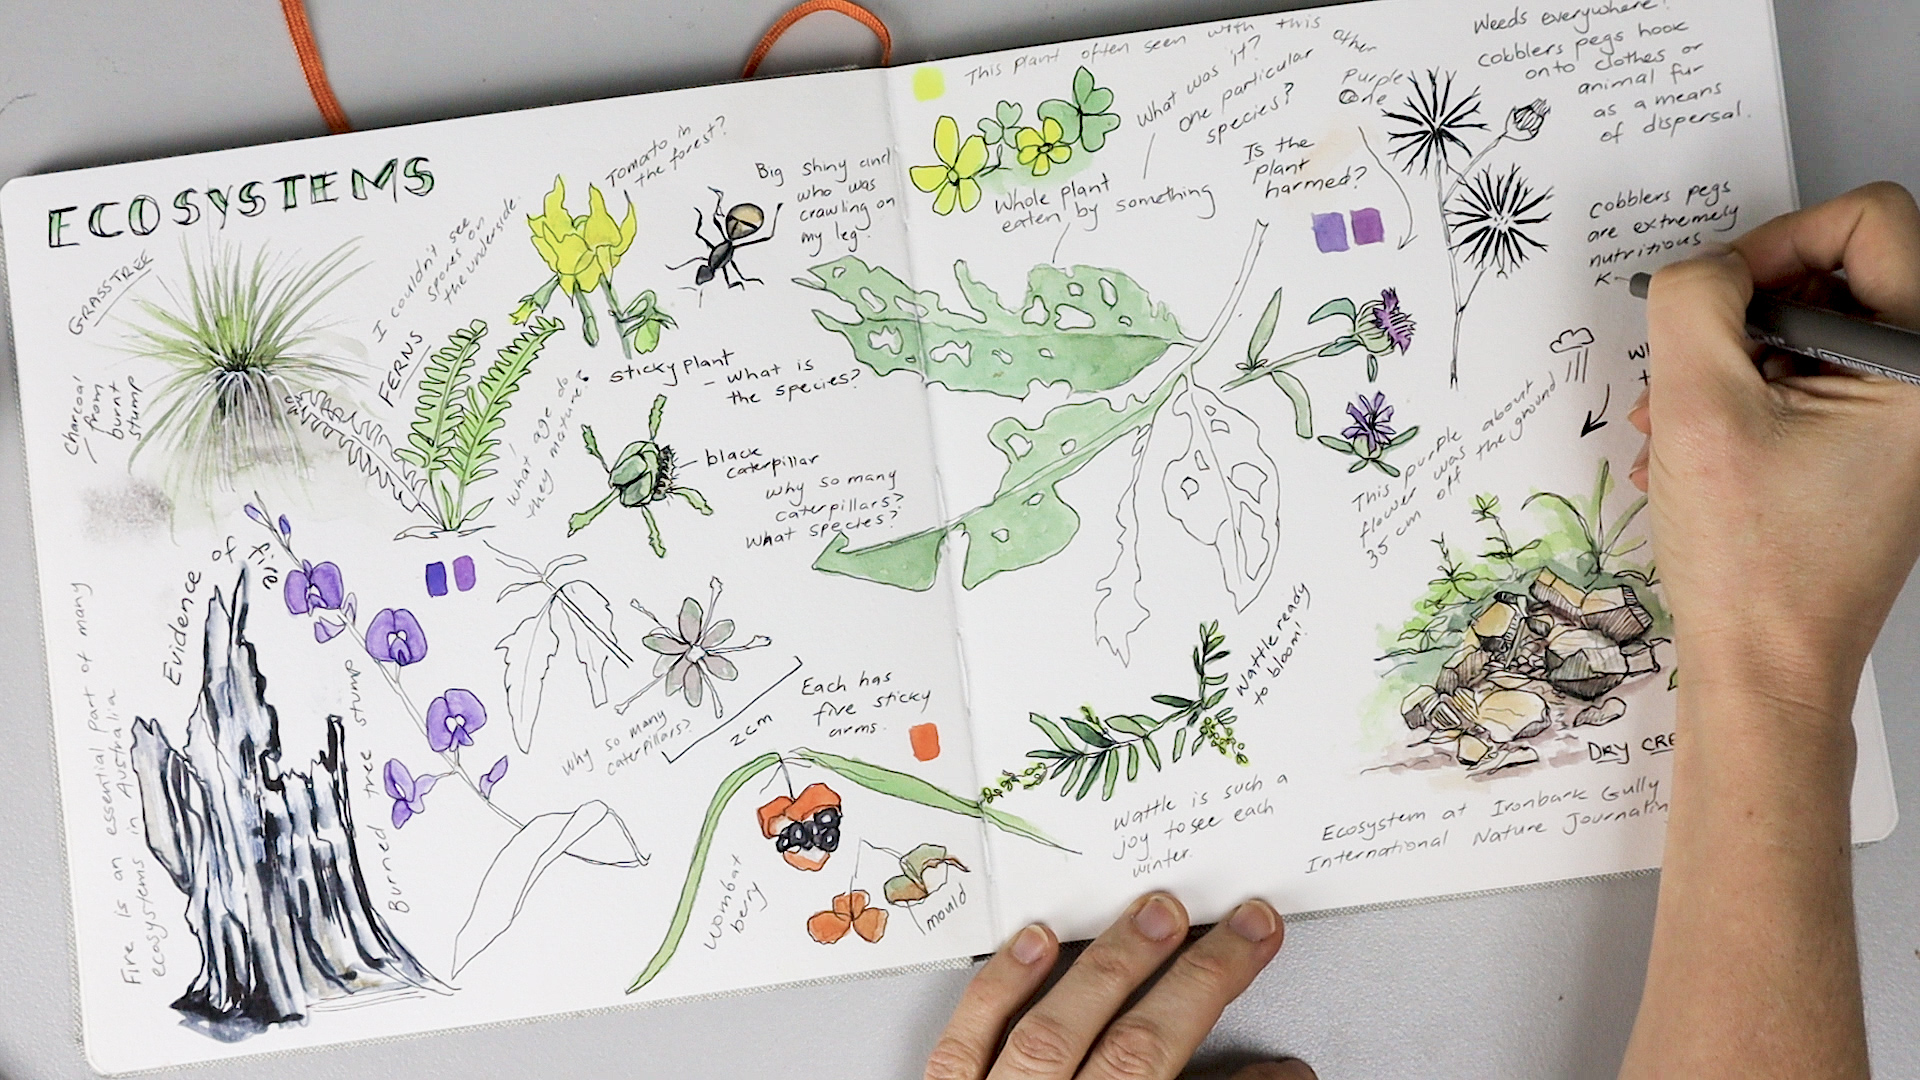 ECOSYSTEMS
GRASSTREE
Charcoal
from
burnt
stump
I couldn't see
spores on
the underside.
FERNS
Tomato in
the forest?
Big shiny and
who was
crawling on
my leg.
sticky plant
- What is
the species?
What age do
they mature?
black
caterpillar
Why so many
caterpillars?
What species?
Evidence of fire
Fire is an essential part of many
ecosystems in Australia
Burned tree stump
Why so many
caterpillars?
2cm
Each has
five sticky
arms.
Wombat
berry
mould
This plant often seen with this other
What was it?
one particular
species?
Whole plant
eaten by something
Is the
plant
harmed?
Purple
one
Weeds everywhere!
Cobblers pegs hook
onto clothes or
animal fur
as a means
of dispersal.
Cobblers pegs
are extremely
nutritious
K
This purple
flower was about
35 cm off the ground
Wattle ready
to bloom!
Wattle is such a
joy to see each
winter.
DRY CRE
Ecosystem at Ironbark Gully
International Nature Journalin